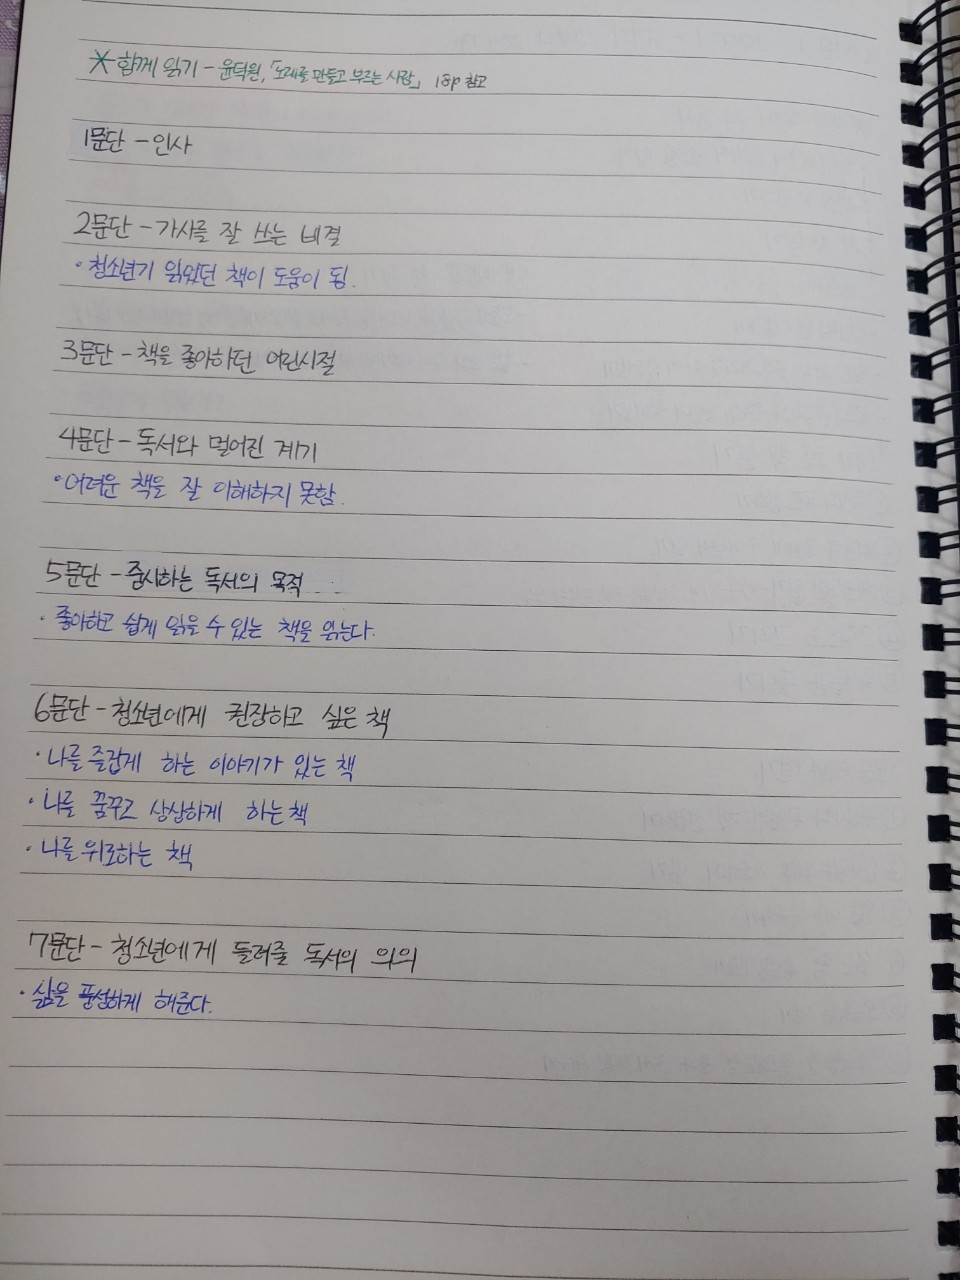 * 함께 읽기 - 윤덕원, 「노래를 만들고 부르는 사람」 18p 참고
1문단 - 인사
2문단 - 가사를 잘 쓰는 비결
· 청소년기 읽었던 책이 도움이 됨.
3문단 - 책을 좋아하던 어린시절
4문단 - 독서와 멀어진 계기
· 어려운 책을 잘 이해하지 못함.
5문단 - 중시하는 독서의 목적
· 좋아하고 쉽게 읽을 수 있는 책을 읽는다.
6문단 - 청소년에게 권장하고 싶은 책
· 나를 즐겁게 하는 이야기가 있는 책
· 나를 꿈꾸고 상상하게 하는 책
· 나를 위로하는 책
7문단 - 청소년에게 들려줄 독서의 의의
· 삶을 풍성하게 해준다.